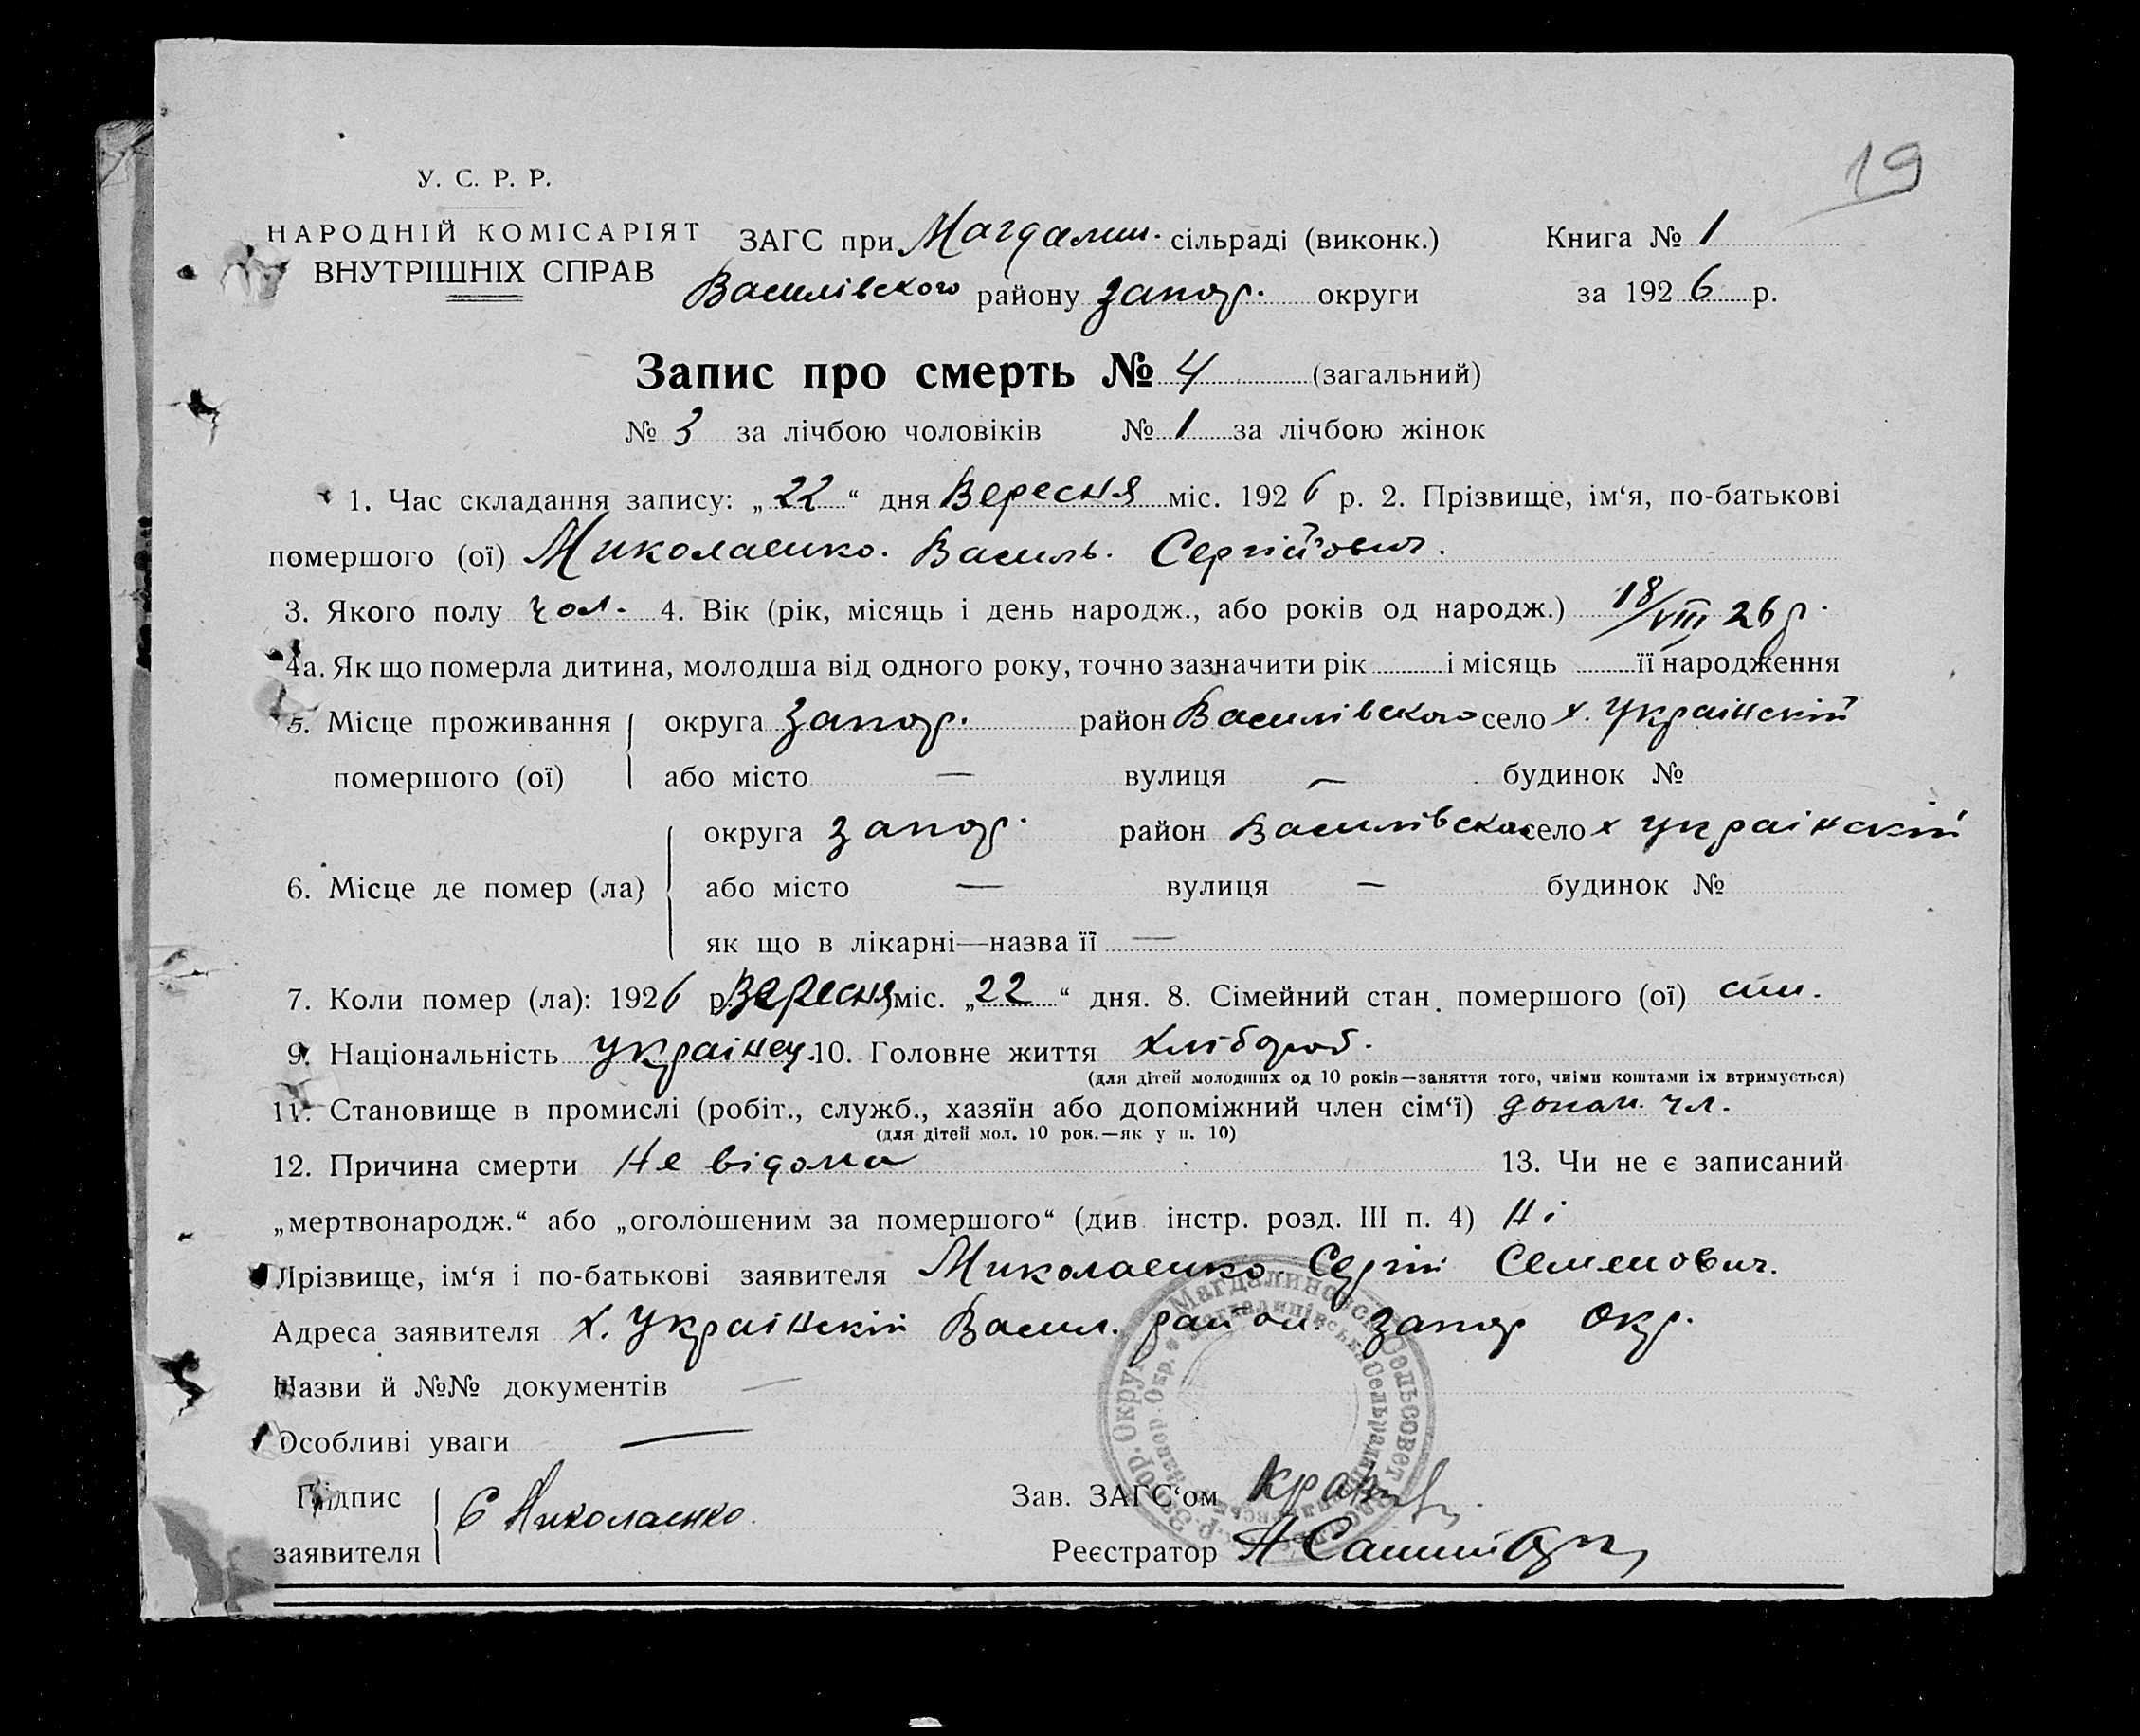 19
У. С. Р. Р.
НАРОДНІЙ КОМІСАРІЯТ
ВНУТРІШНІХ СПРАВ
ЗАГС при Магдалин. сільраді (виконк.) Книга № 1
Василівского району Запор. округи за 1926 р.
Запис про смерть № 4 (загальний)
№ 3 за лічбою чоловіків № 1 за лічбою жінок
1. Час складання запису: „22“ дня Вересня міс. 1926 р. 2. Прізвище, ім‘я, по-батькові
помершого (ої) Миколаенко. Василь. Сергійович.
3. Якого полу чол. 4. Вік (рік, місяць і день народж., або років од народж.) 18/VIII 26 р.
4а. Як що померла дитина, молодша від одного року, точно зазначити рік і місяць її народження
5. Місце проживання округа Запор. район Василівского село х. Украінскій
помершого (ої) або місто — вулиця — будинок №
округа Запор. район Василівско село х Украінскій
6. Місце де помер (ла) або місто — вулиця — будинок №
як що в лікарні—назва її —
7. Коли помер (ла): 1926 р. Вересня міс. „22“ дня. 8. Сімейний стан помершого (ої)
9. Національність украінец. 10. Головне життя хлібороб.
(для дітей молодших од 10 років—заняття того, чиїми коштами їх втримується)
11. Становище в промислі (робіт., служб., хазяїн або допоміжний член сім‘ї) допом. чл.
(для дітей мол. 10 рок.—як у п. 10)
12. Причина смерти Не відома 13. Чи не є записаний
„мертвонародж.“ або „оголошеним за помершого“ (див інстр. розд. III п. 4) Ні
Прізвище, ім‘я і по-батькові заявителя Миколаенко Сергій Семенович.
Адреса заявителя х. Украінскій Васил. район. Запор Окр.
Назви й №№ документів —
Особливі уваги —
Підпис
заявителя С Николаенко.
Зав. ЗАГС‘ом
Реєстратор А
Магдалиновск Сельсовет
Запор. Округ